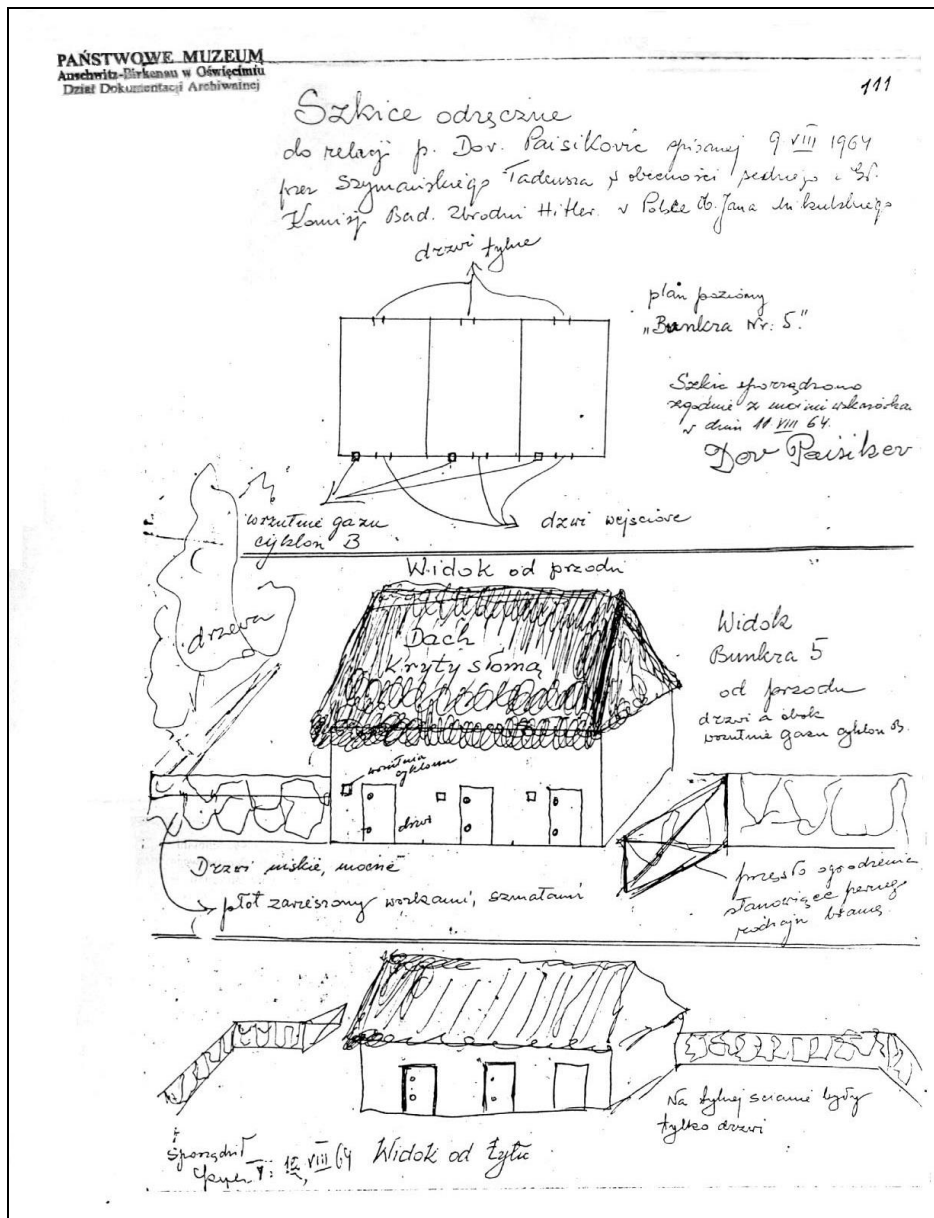 PAŃSTWOWE MUZEUM
Auschwitz-Birkenau w Oświęcimiu
Dział Dokumentacji Archiwalnej
111
Szkice odręczne
do relacji p. Dov. Paisikovic spisanej 9 VIII 1964
przez Szymańskiego Tadeusza w obecności sędziego i Gł.
Komisji Bad. Zbrodni Hitler. w Polsce Jana Mikulskiego
drzwi tylne
plan poziomy
„Bunkra Nr: 5.”
Szkic sporządzono
zgodnie z moimi wskazówka
w dniu 11 VIII 64.
Dov Paisikov
wrzutnie gazu
cyklon B
drzwi wejściowe
Widok od przodu
drzewa
Dach
Kryty słomą
Widok
Bunkra 5
od przodu
drzwi a obok
wrzutnie gazu cyklon B.
wrzutnia
cyklonu
drzwi
Drzwi niskie, mocne
płot zawieszony workami, szmatami
przęsło ogrodzenia
stanowiące pewnego
rodzaju bramę
Na tylnej ścianie były
tylko drzwi
Sporządził
VIII 64 Widok od tyłu